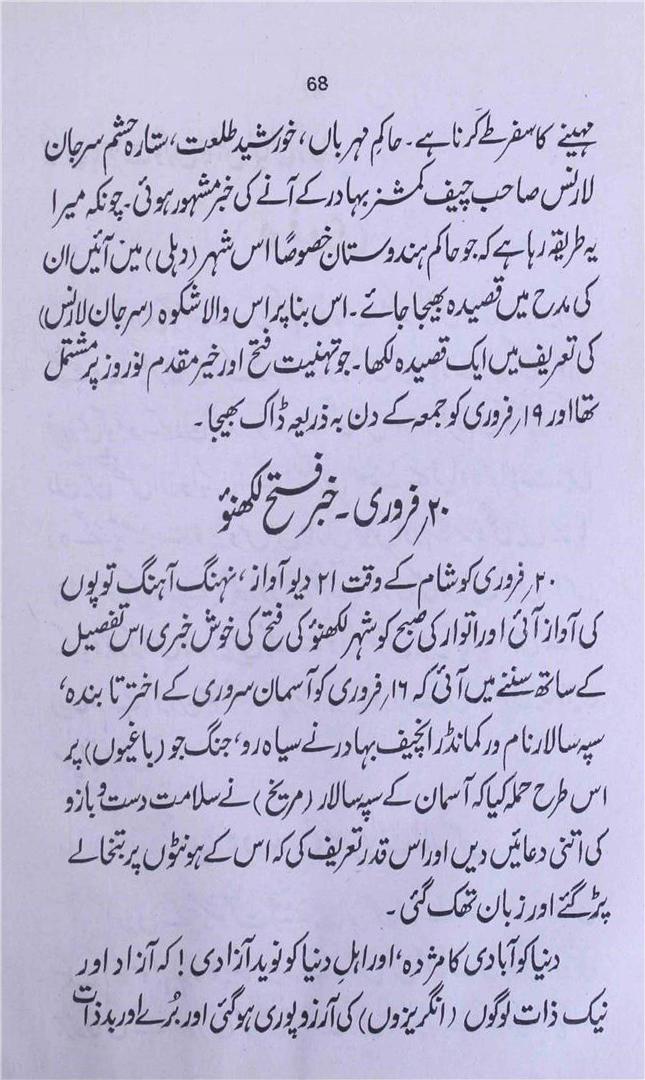 68
مہینے کا سفر طے کرنا ہے۔ حاکمِ مہرباں، خورشید طلعت، ستارہ حشم سر جان
لارنس صاحب چیف کمشنر بہادر کے آنے کی خبر مشہور ہوئی۔ چونکہ میرا
یہ طریقہ رہا ہے کہ جو حاکم ہندوستان خصوصًا اس شہر (دہلی) میں آئیں ان
کی مدح میں قصیدہ بھیجا جائے۔ اس بنا پر اس والا شکوہ (سر جان لارنس)
کی تعریف میں ایک قصیدہ لکھا۔ جو تہنیت فتح اور خیر مقدم نو روز پر مشتمل
تھا اور ۱۹؍ فروری کو جمعہ کے دن بہ ذریعہ ڈاک بھیجا۔
۲۰؍ فروری۔ خبر فتح لکھنؤ
۲۰؍ فروری کو شام کے وقت ۲۱ دیو آواز، نہنگ آہنگ توپوں
کی آواز آئی اور اتوار کی صبح کو شہر لکھنؤ کی فتح کی خوش خبری اس تفصیل
کے ساتھ سننے میں آئی کہ ۱۶؍ فروری کو آسمان سروری کے اختر تابندہ،
سپہ سالار نام ور کمانڈر انچیف بہادر نے سیاہ رو، جنگ جو (باغیوں) پر
اس طرح حملہ کیا کہ آسمان کے سپہ سالار (مریخ) نے سلامت دست و بازو
کی اتنی دعائیں دیں اور اس قدر تعریف کی کہ اس کے ہونٹوں پر تبخالے
پڑ گئے اور زبان تھک گئی۔
دنیا کو آبادی کا مژدہ، اور اہلِ دنیا کو نوید آزادی ! کہ آزاد اور
نیک ذات لوگوں (انگریزوں) کی آرزو پوری ہو گئی اور بُرے اور بد ذات